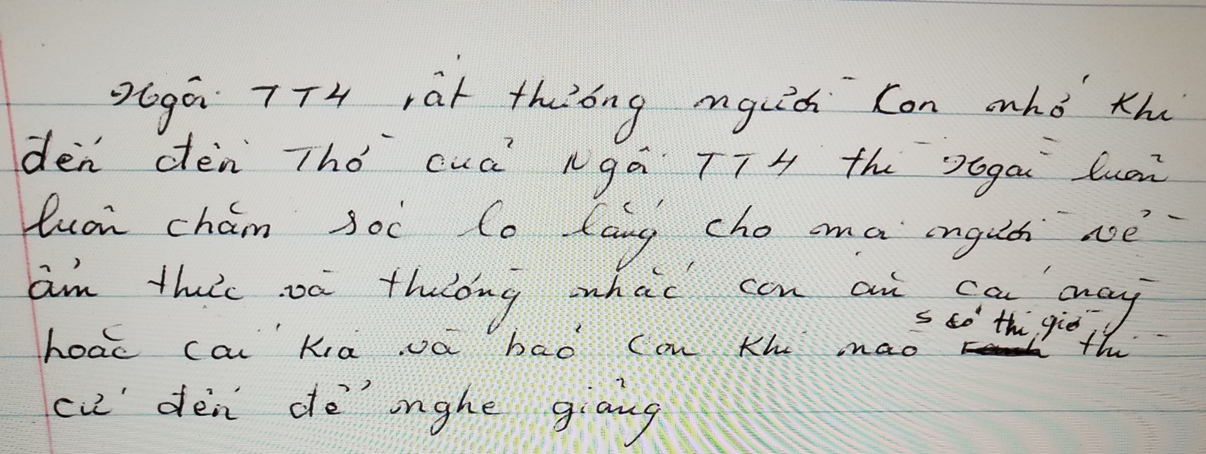 Ngài TT4 rất thương người Con nhớ Khi
đến đèn Thờ của Ngài TT4 thì Ngài luôn
luôn chăm sóc lo lắng cho mọi người về
ẩm thực và thường nhắc con ăn cái này
hoặc cái kia và bảo Con Khi nào có thì giờ thì
cứ đến để nghe giảng